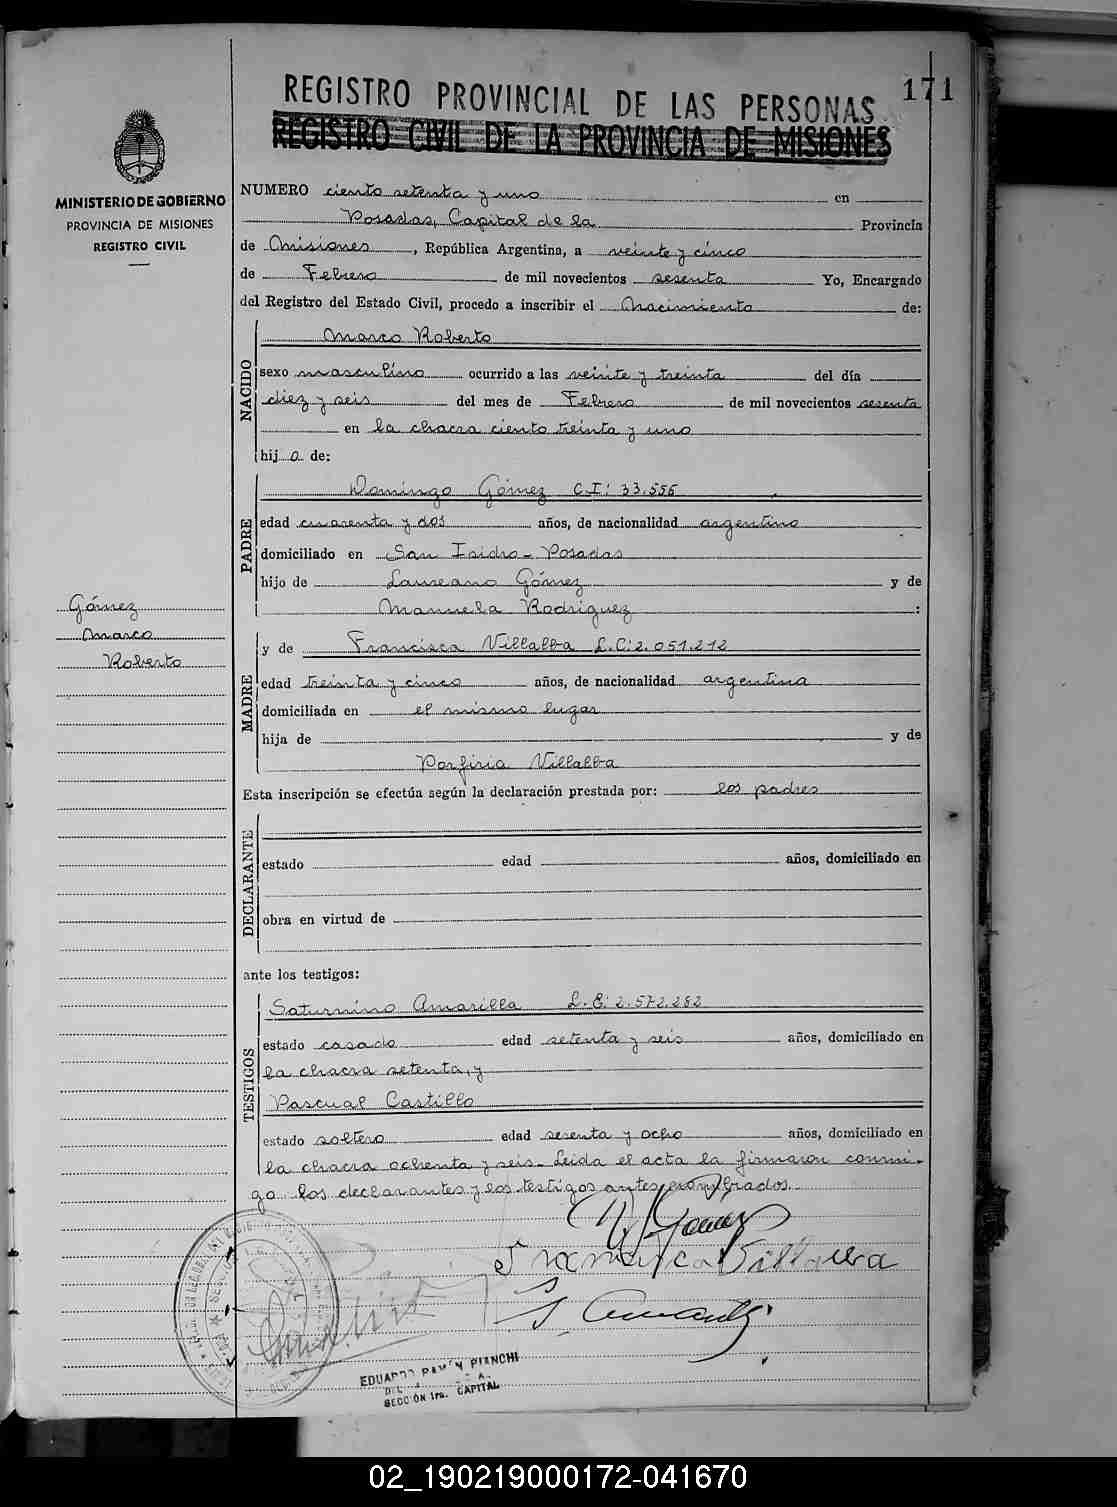 171
REGISTRO PROVINCIAL DE LAS PERSONAS
REGISTRO CIVIL DE LA PROVINCIA DE MISIONES
MINISTERIO DE GOBIERNO
PROVINCIA DE MISIONES
REGISTRO CIVIL
NUMERO ciento setenta y uno en
Posadas, Capital de la Provincia
de Misiones, República Argentina, a veinte y cinco
de Febrero de mil novecientos sesenta Yo, Encargado
del Registro del Estado Civil, procedo a inscribir el Nacimiento de:
NACIDO
Marco Roberto
sexo masculino ocurrido a las veinte y treinta del día
diez y seis del mes de Febrero de mil novecientos sesenta
en la chacra ciento treinta y uno
hij o de:
PADRE
Domingo Gómez C.I: 33.556
edad cuarenta y dos años, de nacionalidad argentino
domiciliado en San Isidro - Posadas
hijo de Laureano Gómez y de
Manuela Rodriguez :
Gómez
Marco
Roberto
MADRE
y de Francisca Villalba L.C: 2.051.212
edad treinta y cinco años, de nacionalidad argentina
domiciliada en el mismo lugar
hija de y de
Porfiria Villalba
Esta inscripción se efectúa según la declaración prestada por: los padres
DECLARANTE
estado edad años, domiciliado en
obra en virtud de
ante los testigos:
TESTIGOS
Saturnino Amarilla L.E: 2.572.282
estado casado edad setenta y seis años, domiciliado en
la chacra setenta, y
Pascual Castillo
estado soltero edad sesenta y ocho años, domiciliado en
la chacra ochenta y seis - Leida el acta la firmaron conmi-
go los declarantes y los testigos antes nombrados.
Gomez
Francisca Villalba
EDUARDO RAMÓN BIANCHI
SECCIÓN 1ra. CAPITAL
02_190219000172-041670